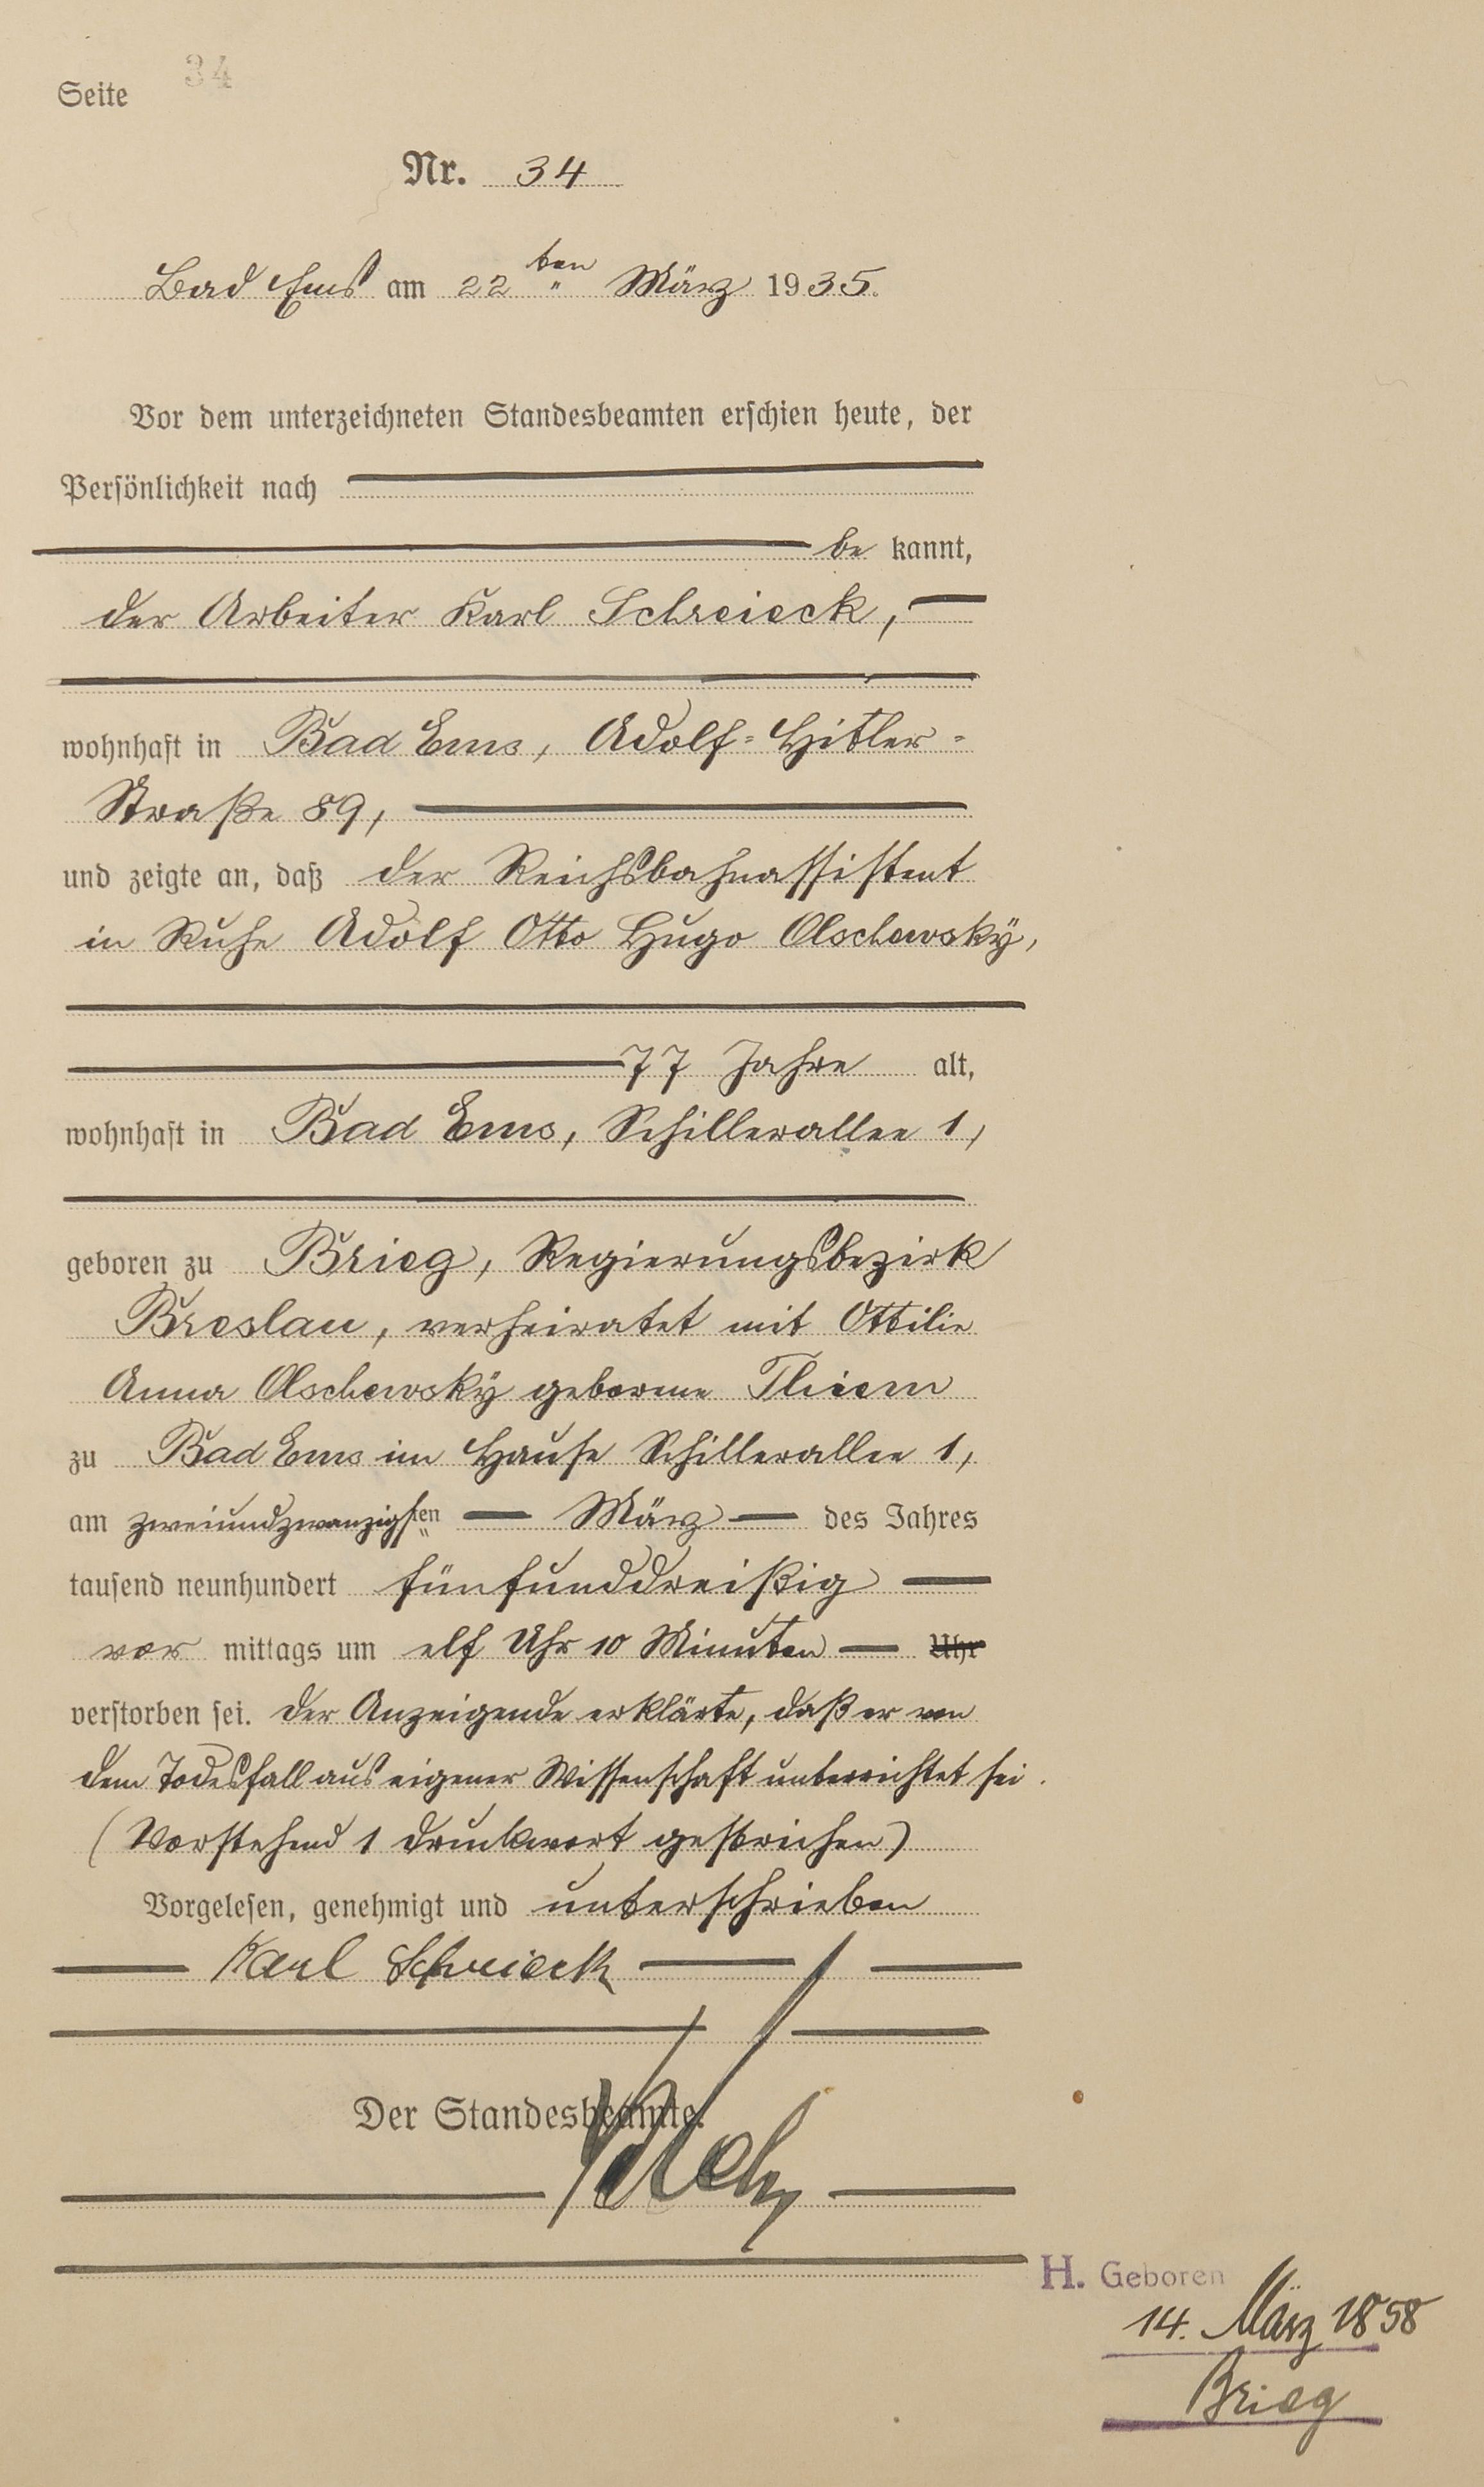 Seite 34
Nr. 34
Bad Ems am 22ten März 1935.
Vor dem unterzeichneten Standesbeamten erschien heute, der
Persönlichkeit nach
be kannt,
der Arbeiter Karl Schreieck,
wohnhaft in Bad Ems, Adolf-Hitler-
Straße 89,
und zeigte an, daß der Reichsbahnassistent
in Ruhe Adolf Otto Hugo Olschewsky,
77 Jahre alt,
wohnhaft in Bad Ems, Schillerallee 1,
geboren zu Brieg, Regierungsbezirk
Breslau, verheiratet mit Ottilie
Anna Olschewsky geborene Thiem
zu Bad Ems im Hause Schillerallee 1,
am zweiundzwanzigsten März des Jahres
tausend neunhundert fünfunddreißig
vor mittags um elf Uhr 10 Minuten Uhr
verstorben sei. Der Anzeigende erklärte, daß er von
dem Todesfall aus eigener Wissenschaft unterrichtet sei.
(Vorstehend 1 Druckwort gestrichen)
Vorgelesen, genehmigt und unterschrieben
Karl Schreieck
Der Standesbeamte.
H. Geboren
14. März 1858
Brieg